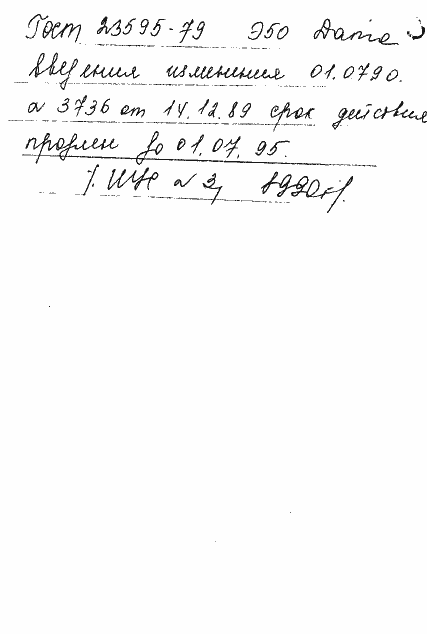 Гост 23595-79 Э50 Дата
введения изменения 01.0790.
№ 3736 от 14.12.89 срок действия
продлен до 01.07.95.
/. ИУС № 3, 1990г/.